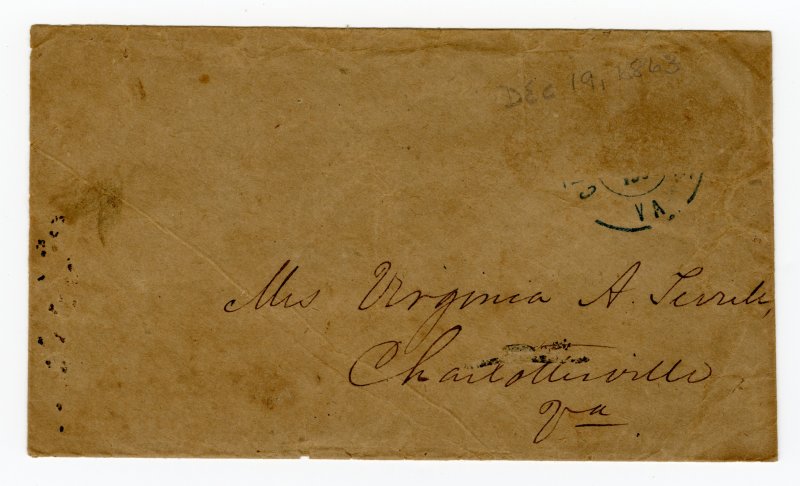 DEC 19, 1863
VA.
Mrs Virginia A.
Charlottesville
Va